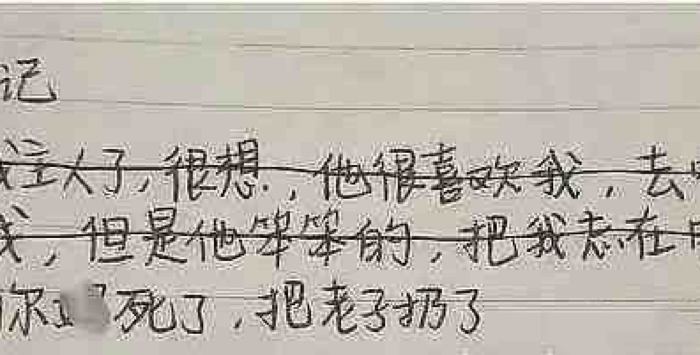 记
我主人了,很想.,他很喜欢我,去
我,但是他笨笨的,把我忘在
你 死了,把老子扔了